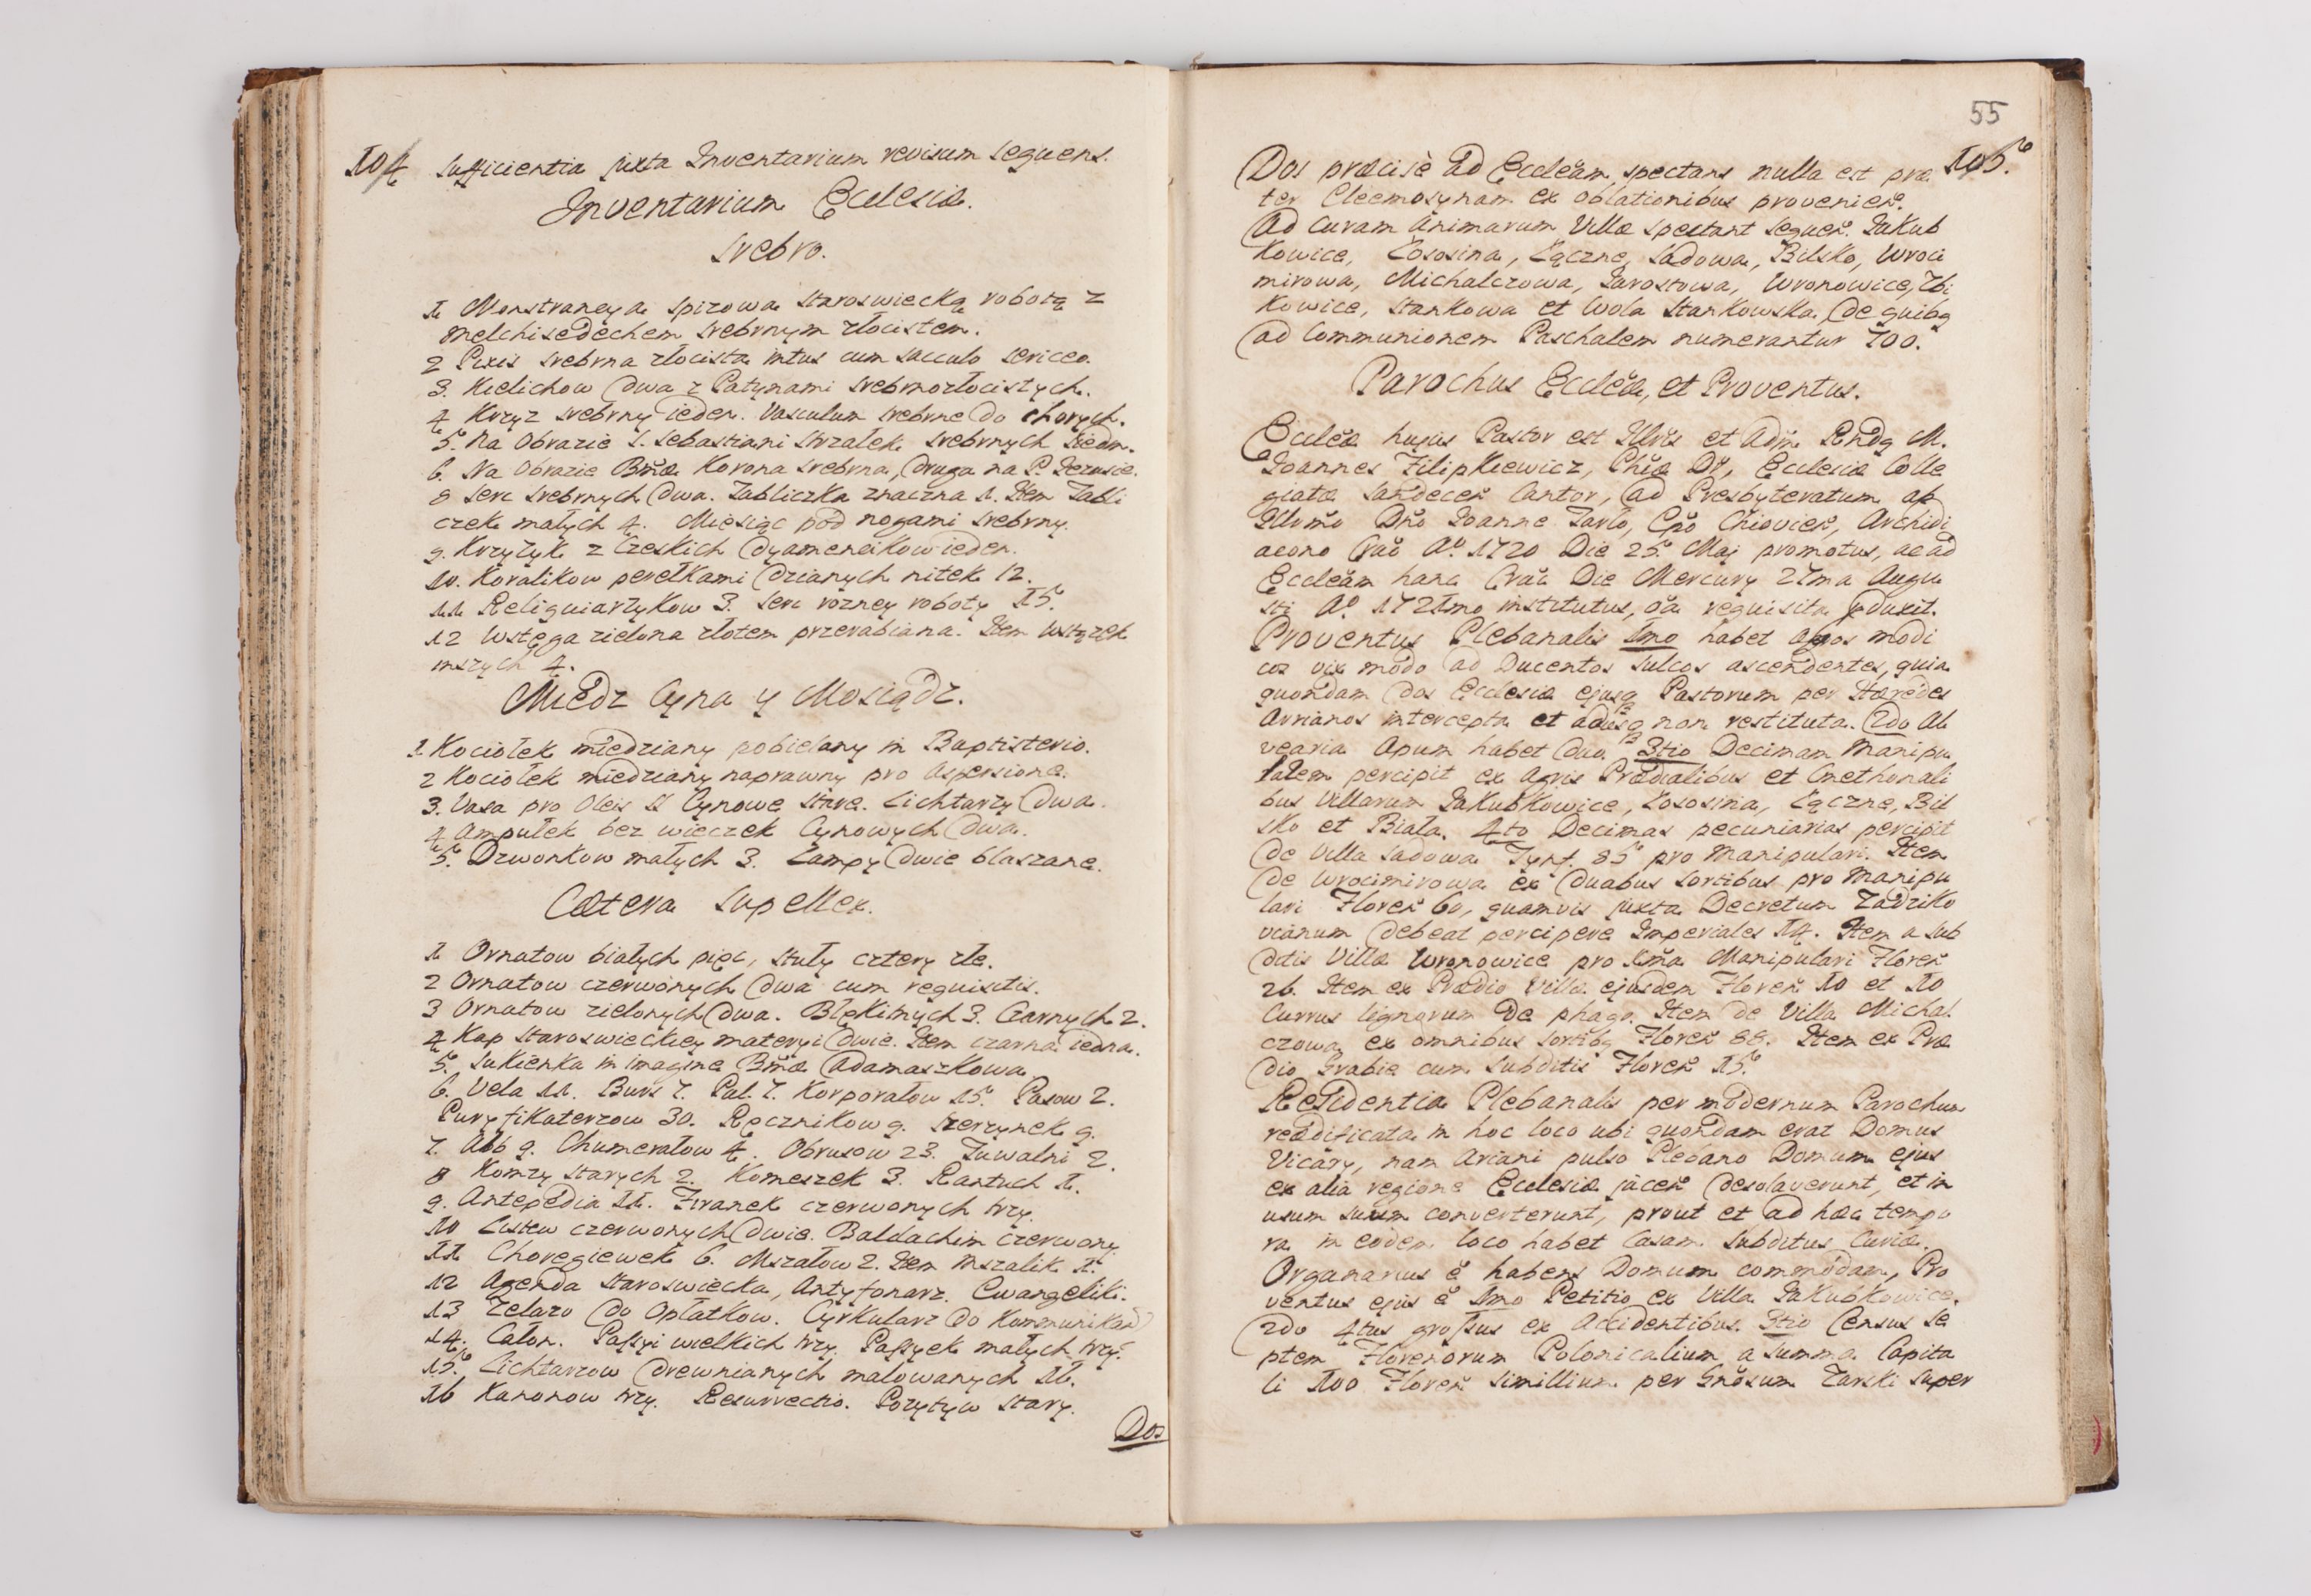 104
sufficientia juxta Inventarium revisum sequens.
Inventarium Ecclesiæ.
Srebro.
1 Monstrancya spizowa staroswiecką robotą z
Melchisedechem srebrnym złocistem.
2 Pixis srebrna złocista intus cum sacculo sericeo.
3. Kielichow dwa z Patynami srebrnozłocistych.
4 Krzyz srebrny ieden. Vasculum srebrne do chorych.
5. Na Obrazie S. Sebastiani Strzałek srebrnych siedm.
6. Na Obrazie Bm̃æ Korona srebrna, druga na P. Jezusie.
8 Serc srebrnych dwa. Tabliczka znaczna 1. Item Tabli
czek małych 4. Miesiąc pod nogami srebrny.
9. Krzyżyk z Czeskich dyamencikow ieden.
10. Koralikow perełkami dzianych nitek 12.
11 Reliquiarzykow 3. Serc rozney roboty 15.
12 Wstęga zielona złotem przerabiana. Item Wstązek
inszych 4.
Miedz Cyna y Mosiądz.
1. Kociołek miedziany pobielany in Baptisterio.
2 Kociołek miedziany naprawny pro Aspersione.
3. Vasa pro Oleis SS Cynowe stare. Lichtarzy dwa.
4 Ampułek bez wieczek Cynowych dwa.
5. Dzwonkow małych 3. Lampy dwie blaszane.
Cætera Supellex.
1 Ornatow białych pięć, stuły cztery złe.
2 Ornatow czerwonych dwa cum requisitis.
3 Ornatow zielonych dwa. Błękitnych 3. Czarnych 2.
4 Kap staroswieckiey materyi dwie. Item czarna iedna.
5. Sukienka in imagine Bm̃æ Adamaszkowa
6. Vela 11. Burs 7. Pal. 7. Korporałow 15. Pasow 2.
Puryfikaterzow 30. Ręcznikow 9. Szerzynek 9.
7. Alb 9. Chumerałow 4. Obrusow 23. Tuwalni 2.
8 Komzy starych 2. Komeszek 3. Rantuch 1.
9. Antepedia 11. Firanek czerwonych trzy.
10 Listew czerwonych dwie. Baldachim czerwony.
11 Choregiewek 6. Mszałow 2. Item Mszalik 1.
12 Agenda staroswiecka, Antyfonarz. Ewangeliki.
13 Zelazo do Opłatkow. Cyrkularz do Kommunikan̄
14. Całon. Passyi wielkich trzy. Passyek małych trzy.
15. Lichtarzow drewnianych malowanych 16.
16 Kanonow trzy. Resurrectio. Pozytyw stary.
Dos
55
105.
Dos præcisè ad Ecclẽam spectans nulla est præ
ter Eleemosynam ex oblationibus provenien̄.
Ad Curam Animarum Villæ spectant sequen̄. Jakub
kowice, Łososina, Łączne, Sadowa, Bilsko, Wroci
mirowa, Michalczowa, Jarostowa, Wronowice, Zbi
kowice, Stankowa et Wola Stankowska. De quibq
ad Communionem Paschalem numerantur 700.
Parochus Ecclẽæ, et Proventus.
Ecclẽæ hujus Pastor est Illris et Adm̃ Rndq M.
Joannes Filipkiewicz, Phiæ Dr, Ecclesiæ Colle
giatæ Sandecen̄ Cantor, ad Presbyteratum ab
Illrm̃o Dño Joanne Tarło, Epõ Chiovien̄, Archidi
acono Crac̄ Aº 1720 Die 25. Maj promotus, ac ad
Ecclẽam hanc Crac̄ Die Mercury 27ma Augu
sti Aº 1721mo institutus, oã requisita pduxit.
Proventus Plebanalis 1mo habet agros modi
cos vix modo ad Ducentos sulcos ascendentes, quia
quondam dos Ecclesiæ ejusq Pastorum per Hæredes
Arrianos intercepta et adusq non restituta. 2do Al
vearia Apum habet duo. 3tio Decimam Manipu
latem percipit ex Agris Prædialibus et Cmethonali
bus Villarum Jakubkowice, Łososina, Łączne, Bil
sko et Biała. 4to Decimas pecuniarias percipit
de Villa Sadowa Tynf. 85 pro Manipulari. Item
de Wrocimirowa ex duabus sortibus pro Manipu
lari Floren̄ 60, quamvis juxta Decretum Zadziko
vianum debeat percipere Imperiales 14. Item a Sub
ditis Villæ Wronowice pro Xma Manipulari Floren̄
26. Item ex Prædio Villæ ejusdem Floren̄ 10 et 10
Currus lignorum de phago. Item de Villa Michal
czowa ex omnibus sortibq Floren̄ 88. Item ex Præ
dio Grabie cum Subditis Floren̄ 15.
Residentia Plebanalis per modernum Parochum
reædificata in hoc loco ubi quondam erat Domus
Vicary, nam Ariani pulso Plebano Domum ejus
ex alia regione Ecclesiæ jacen̄ desolaverunt, et in
usum suum converterunt, prout et ad hæc tempo
ra in eodem loco habet Casam Subditus Curiæ.
Organarius ẽ habens Domum commodam, Pro
ventus ejus ẽ 1mo Petitio ex Villa Jakubkowice.
2do 4tus grossus ex Accidentibus. 3tio Census Se
ptem Florenorum Polonicalium a Summa Capita
li 100 Floren̄ simillium per Gñosum Zarski super